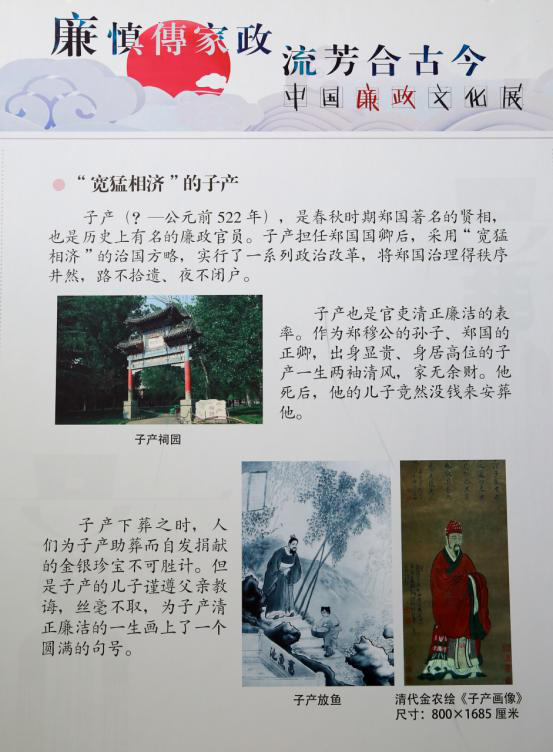 廉慎傳家政
流芳合古今
中国廉政文化展
“宽猛相济”的子产
子产（？—公元前522年），是春秋时期郑国著名的贤相，
也是历史上有名的廉政官员。子产担任郑国国卿后，采用“宽猛
相济”的治国方略，实行了一系列政治改革，将郑国治理得秩序
井然，路不拾遗、夜不闭户。
子产也是官吏清正廉洁的表
率。作为郑穆公的孙子、郑国的
正卿，出身显贵、身居高位的子
产一生两袖清风，家无余财。他
死后，他的儿子竟然没钱来安葬
他。
子产祠园
子产下葬之时，人
们为子产助葬而自发捐献
的金银珍宝不可胜计。但
是子产的儿子谨遵父亲教
诲，丝毫不取，为子产清
正廉洁的一生画上了一个
圆满的句号。
子产放鱼
清代金农绘《子产画像》
尺寸：800×1685厘米